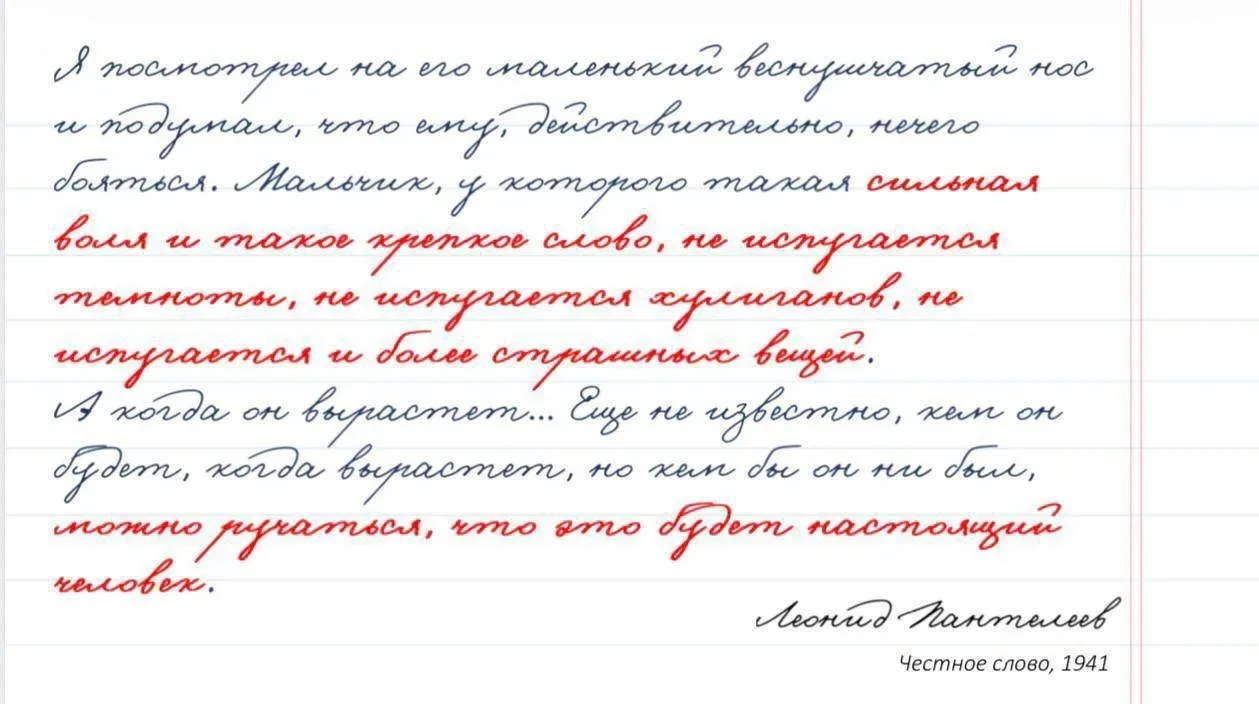 Я посмотрел на его маленький веснушчатый нос
и подумал, что ему, действительно, нечего
бояться. Мальчик, у которого такая сильная
воля и такое крепкое слово, не испугается
темноты, не испугается хулиганов, не
испугается и более страшных вещей.
А когда он вырастет... Еще не известно, кем он
будет, когда вырастет, но кем бы он ни был,
можно ручаться, что это будет настоящий
человек.
Леонид Пантелеев
Честное слово, 1941